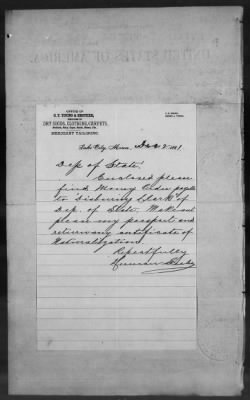 UNITED STATES OF AMERICA
OFFICE OF
DRY GOODS, CLOTHING, CARPETS,
MERCHANT TAILORING.
Lake City, Minn, Dec 2 1881
Dep of State!
Enclosed please
find Money Order payable
to Disbursing Clerk of
Dep. of State. Make out
please my passport and
return my certificate of
Naturalization.
Respectfully
Herman